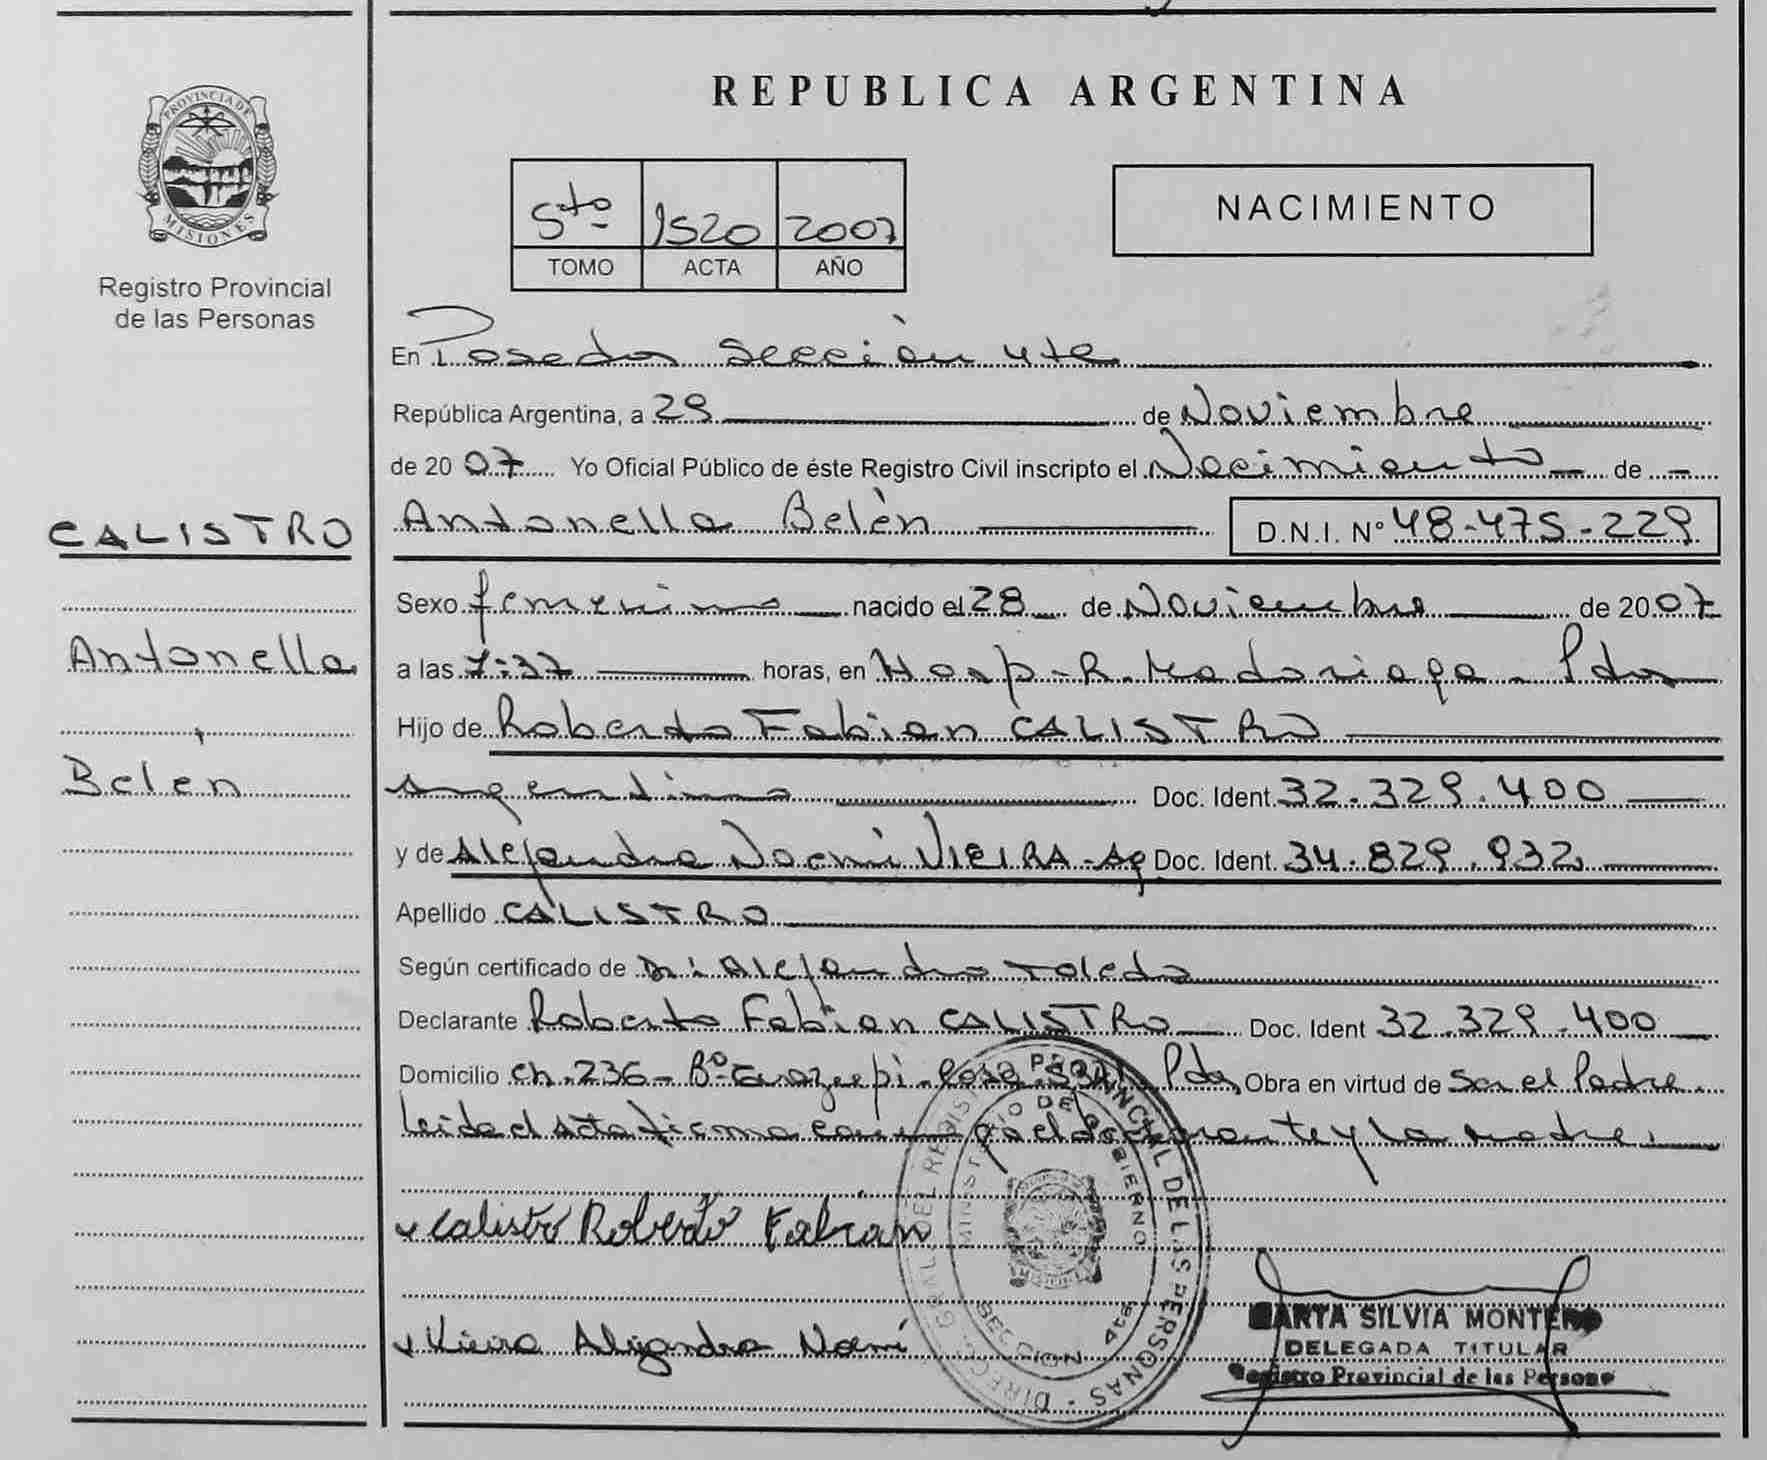 REPUBLICA ARGENTINA
PROVINCIA DE
MISIONES
Registro Provincial
de las Personas
5to 1520 2007
TOMO ACTA AÑO
NACIMIENTO
En Posadas Sección 4ta
República Argentina, a 29 de Noviembre
de 2007 Yo Oficial Público de éste Registro Civil inscripto el Nacimiento de
CALISTRO
Antonella Belén D.N.I. Nº 48-475-229
Sexo femenino nacido el 28 de Noviembre de 2007
Antonella
a las 7:37 horas, en Hosp-R. Madariaga - Pdas
Hijo de Roberto Fabian CALISTRO
Belén
argentino Doc. Ident. 32.329.400
y de Alejandra Noemi VIEIRA-Ag Doc. Ident. 34.829.932
Apellido CALISTRO
Según certificado de Dr: Alejandro Toledo
Declarante Roberto Fabian CALISTRO Doc. Ident 32.329.400
Domicilio Ch.236- Bº Casa Pdas, Obra en virtud de Ser el Padre
Leida el acta firma conmigo el declarante y la madre.
Calistro Roberto Fabian
Vieira Alejandra Noemí
DIREC. GRAL. DEL REGISTRO PROVINCIAL DE LAS PERSONAS
MINISTERIO DE GOBIERNO
SECCION 4ta
MARTA SILVIA MONTERO
DELEGADA TITULAR
Registro Provincial de las Persona